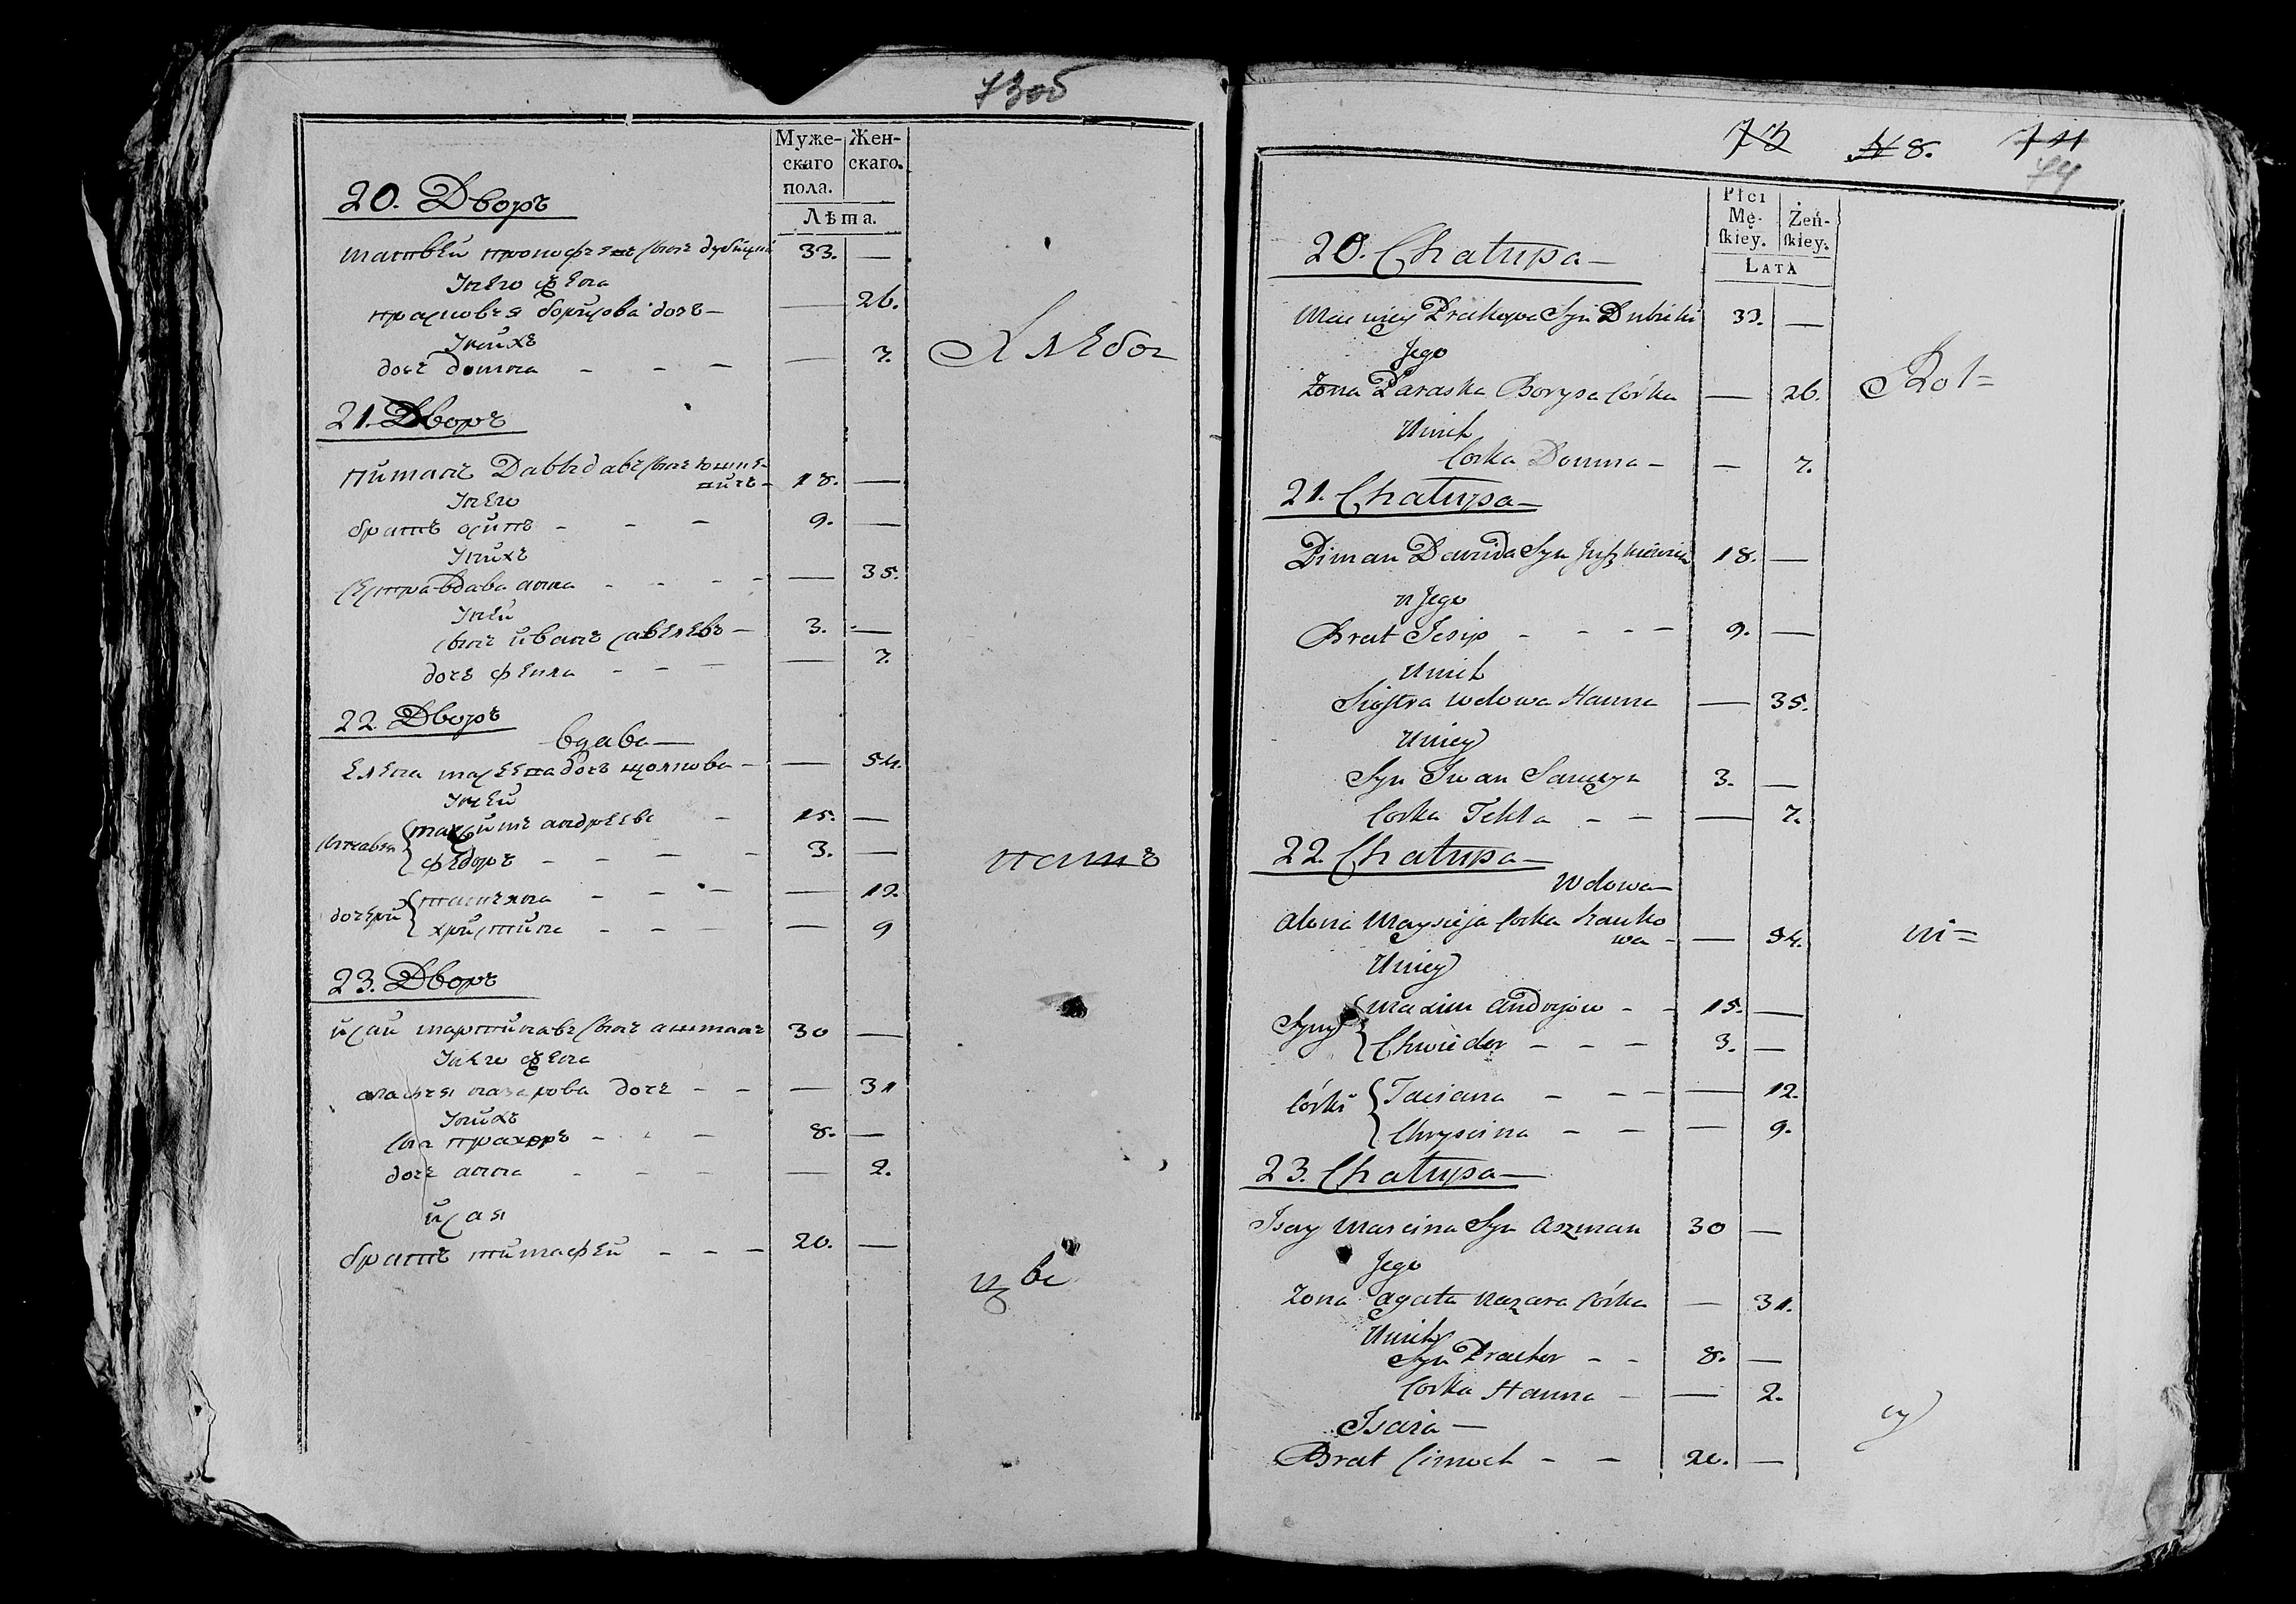 73об
Муже-
скаго
пола.
Жен-
скаго.
Лѣта.
20. Дворъ
матвей прокофьевъ сынъ дубицки 33. —
У него жена
прасковья борисова дочь — — 26.
У них
дочь домна - - — — 7.
Хлебо
21. Дворъ
пиман Давыдавъ сынъ юшке-
вичъ - 18. —
У него
братъ осипъ - - — 9. —
У них
сестра вдава анна - - - - — 35.
У ней
сынъ иванъ савелевъ — 3. —
дочь фекла - - — — 7.
22. Дворъ
вдава —
елена мосеева дочь — — 54.
У ней
сыновья максимъ андреевъ - 15. —
федоръ - - — - 3. —
дочери татьяна - - — — 12.
христина - - - — 9
пашъ
23. Дворъ
исай мартинавъ сынъ ашманъ 30 —
У него жена
агафья назарова дочь - - — 31
У них
сын прахоръ - - — 8. —
дочь анна - - - — 2.
исая
братъ тимафей - - — 20. —
цве
73 № 8. 74
74
Płci
Mę-
ſkiey.
Żeń-
ſkiey.
Lata
20. Chałupa —
Maciey Prakopa Syn Dubicki 33. —
Jego
Żona Paraska Borysa Córka — 26.
U nich
Corka Domna — — 7.
Rol=
21. Chałupa —
Piman Dawida Syn Juszkiewicz 18. —
u Jego
Brat Jesip - - - — 9. —
U nich
Siostra Wdowa Hanna — 35.
U niey
Syn Iwan Sawczyn 3. —
Corka Tekla - — — 7.
22. Chałupa —
Wdowa —
Alona Maysieja Corka
wa - — 54.
U niey
Syny Maxim Andrejow - - 15. —
Chwiedor — - — 3. —
Córki Taciana - - — — 12.
Chryscina — — — 9.
ni=
23. Chałupa —
Isay Marcina Syn Aszman 30 —
Jego
Żona Agata Nazara Córka — 31.
U nich
Syn Prachor - - 8. —
Corka Hanna - — 2.
Isaia —
Brat Cimoch - — 20. —
cy